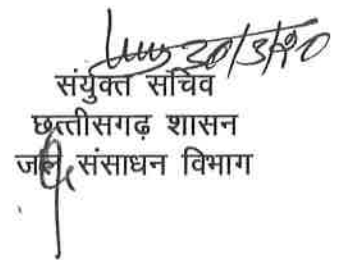 30/3/20
संयुक्त सचिव
छत्तीसगढ़ शासन
जल संसाधन विभाग